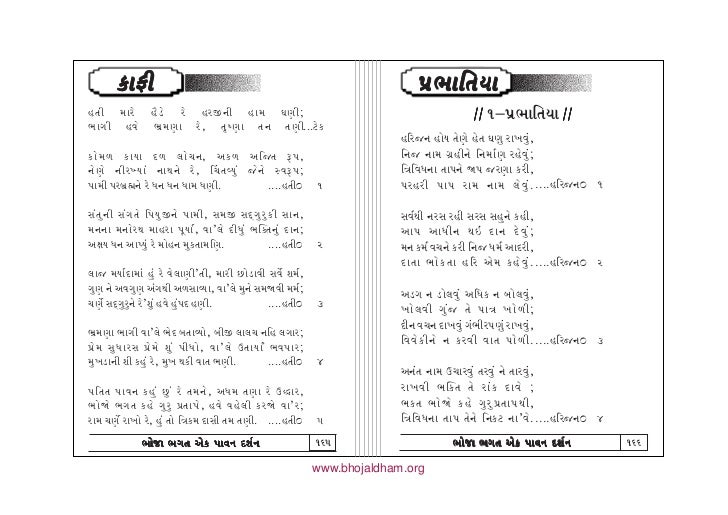 કાફી
હતી મારે હૈડે રે હરજીની હામ ઘણી;
ભાગી હવે ભ્રમણા રે, તૃષ્ણા તન તણી...ટેક
કોમળ કાયા દળ લોચન, અકળ અજિત રૂપ,
નેણે નીરખ્યાં નાથને રે, ચિંતવ્યું જેને સ્વરૂપ;
પામી પરબ્રહ્મને રે ધન ધન ધામ ધણી. ....હતી૦ ૧
સંતુની સંગતે પિયુજીને પામી, સમજી સદ્ગુરુકી સાન,
મનના મનોરથ માહરા પૂર્યા, વા'લે દીધું ભક્તિનું દાન;
અક્ષય ધન આપ્યું રે મોહન મુક્તામણિ. ....હતી૦ ૨
લાજ મર્યાદામાં હું રે વેલાણી'તી, મારી છોડાવી સર્વે શર્મ,
ગુણ ને અવગુણ અંગથી અળસાવ્યા, વા'લે મુને સમજાવી મર્મ;
ચર્ણે સદ્ગુરુને રે'શું હવે હુંપદ હણી. ....હતી૦ ૩
ભ્રમણા ભાગી વા'લે ભેદ બતાવ્યો, બીજી લાલચ નહિ લગાર;
પ્રેમ સુધારસ પ્રેમે શું પીધો, વા'લે ઉતાર્યા ભવપાર;
મુખડાની શી કહું રે, મુખ થકી વાત ભણી. ....હતી૦ ૪
પતિત પાવન કહું છું રે તમને, અધમ તણા રે ઉદ્ધાર,
ભોજો ભગત કહે ગુરુ પ્રતાપે, હવે વહેલી કરજો વા'ર;
રામ ચર્ણે રાખો રે, હું તો ત્રિકમ દાસી તમ તણી. ....હતી૦ ૫
ભોજા ભગત એક પાવન દર્શન ૧૬૫
પ્રભાતિયા
// ૧-પ્રભાતિયા //
હરિજન હોય તેણે હેત ઘણુ રાખવું,
નિજ નામ ગ્રહીને નિર્માણ રહેવું;
ત્રિવિધના તાપને જાપ જરણા કરી,
પરહરી પાપ રામ નામ લેવું.....હરિજન૦ ૧
સર્વથી નરસ રહી સરસ સહુને કહી,
આપ આધીન થઈ દાન દેવું;
મન કર્મ વચને કરી નિજ ધર્મ આદરી,
દાતા ભોકતા હરિ એમ કહેવું.....હરિજન૦ ૨
અડગ ન ડોલવું અધિક ન બોલવું,
ખોલવી ગુંજ તે પાત્ર ખોળી;
દીન વચન દાખવું ગંભીરપણું રાખવું,
વિવેકીને ન કરવી વાત પોળી.....હરિજન૦ ૩
અનંત નામ ઉચારવું તરવું ને તારવું,
રાખવી ભક્તિ તે રાંક દાવે ;
ભકત ભોજો કહે ગુરુપ્રતાપથી,
ત્રિવિધના તાપ તેને નિકટ ના'વે.....હરિજન૦ ૪
ભોજા ભગત એક પાવન દર્શન ૧૬૬
www.bhojaldham.org